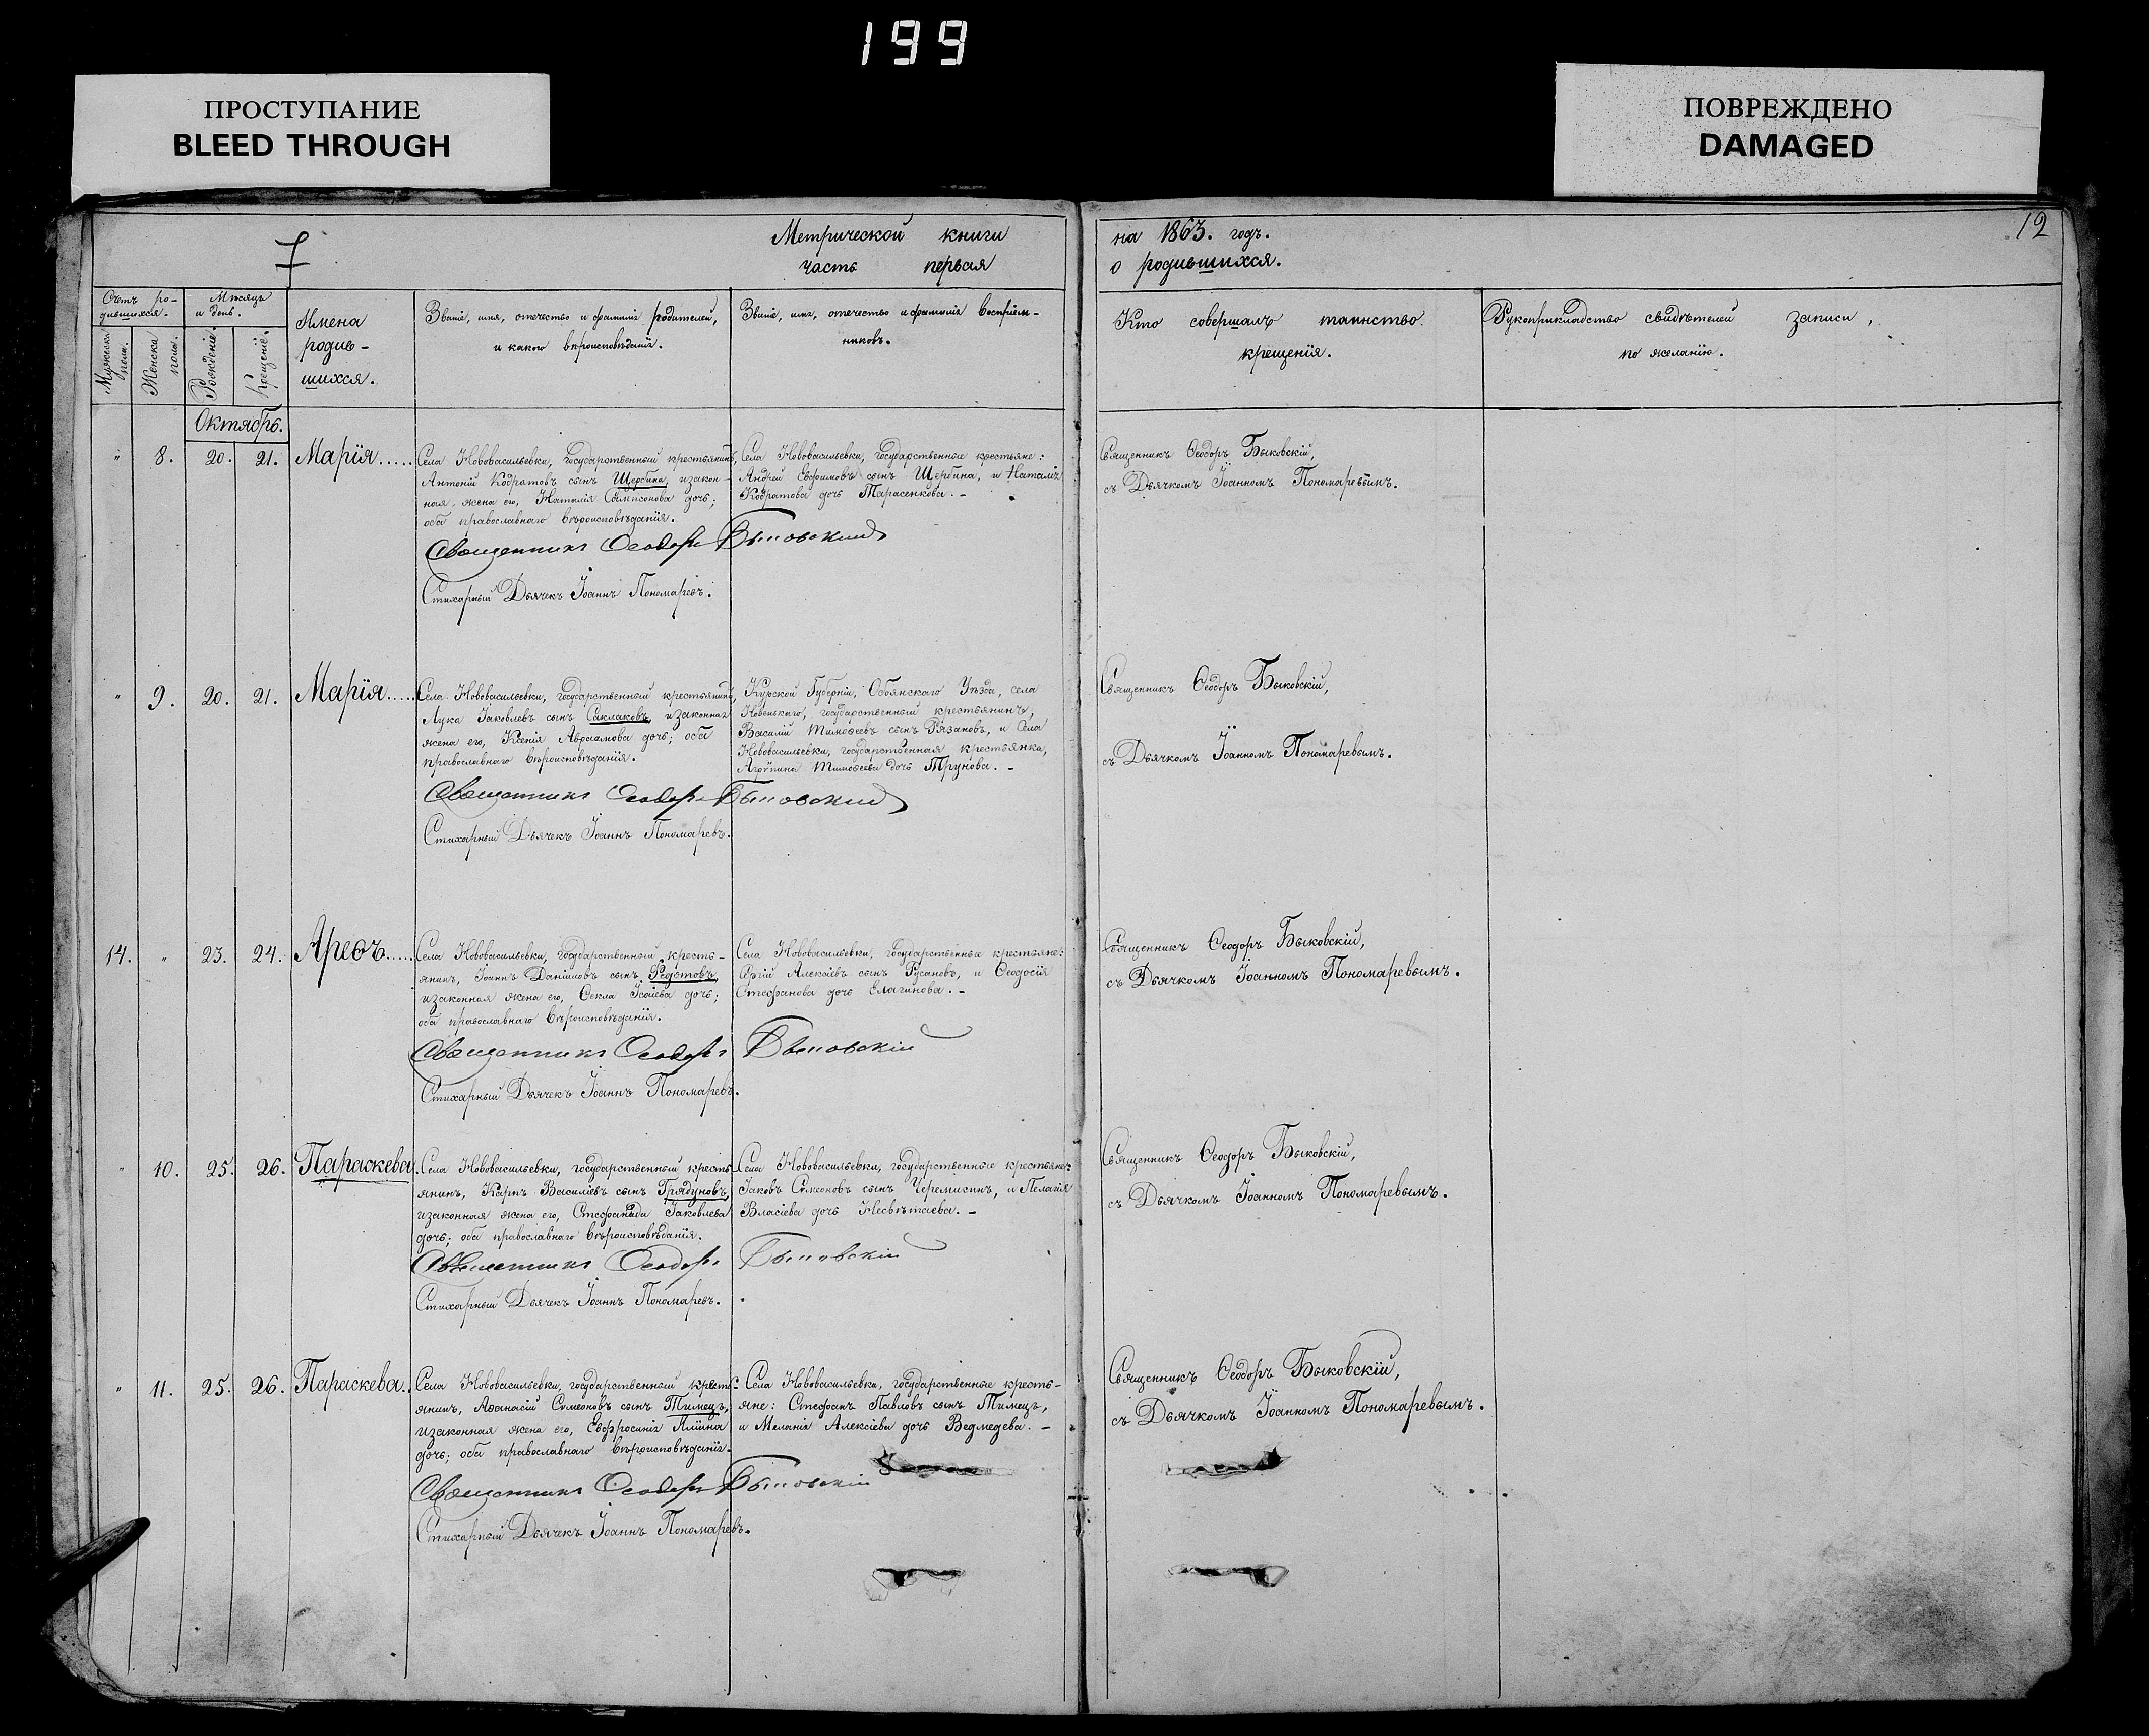 199
ПРОСТУПАНИЕ
BLEED THROUGH
ПОВРЕЖДЕНО
DAMAGED
12
Метрической книги на 1863. годъ.
часть первая о родившихся.
Счетъ ро-
дившихся.
Мужеска пола.
Женска пола.
Мѣсяцъ
и день.
Рожденіе.
Крещеніе.
Имена
родив-
шихся.
Званіе, имя, отечество и фамилія родителей,
и какого вѣроисповѣданія.
Званіе, имя, отечество и фамилія воспріем-
никовъ.
Кто совершалъ таинство
крещенія.
Рукоприкладство свидѣтелей записи,
по желанію.
Октябрь.
" 8. 20. 21. Марія.....
Села Нововасильевки, государственный крестьянинъ,
Антоній Кодратовъ сынъ Щербина, и закон-
ная жена его, Наталія Сампсонова дочь;
оба православнаго вѣроисповѣданія.
Села Нововасильевки, государственные крестьяне:
Андрей Ефимовъ сынъ Щербина, и Наталія
Кодратова дочь Тарасенкова. -
Священникъ Ѳеодоръ Быковскій,
съ Дьячкомъ Іоанномъ Пономаревымъ.
Священникъ Ѳеодоръ Быковскій
Стихарный Дьячекъ Іоаннъ Пономаревъ.
" 9. 20. 21. Марія.....
Села Нововасильевки, государственный крестьянинъ,
Лука Іаковлевъ сынъ Саклаковъ, и законная
жена его, Ксенія Авраамова дочь; оба
православнаго вѣроисповѣданія.
Курской Губерніи, Обоянскаго Уѣзда, села
Новенькаго, государственный крестьянинъ,
Василій Тимоѳеевъ сынъ Рязановъ, и Села
Нововасильевки, государственная крестьянка,
Агрипина Тимоѳеева дочь Трунова. -
Священникъ Ѳеодоръ Быковскій,
съ Дьячкомъ Іоанномъ Пономаревымъ.
Священникъ Ѳеодоръ Быковскій
Стихарный Дьячекъ Іоаннъ Пономаревъ.
14. " 23. 24. Ареѳъ.....
Села Нововасильевки, государственный кресть-
янинъ, Іоаннъ Даніиловъ сынъ
и законная жена его, Ѳекла Ісаіева дочь;
оба православнаго вѣроисповѣданія.
Села Нововасильевки, государственные крестьяне:
Сергій Алексіевъ сынъ Русановъ, и Ѳеодосія
Стефанова дочь Елагинова. -
Священникъ Ѳеодоръ Быковскій,
съ Дьячкомъ Іоанномъ Пономаревымъ.
Священникъ Ѳеодоръ Быковскій
Стихарный Дьячекъ Іоаннъ Пономаревъ.
" 10. 25. 26. Параскева.
Села Нововасильевки, государственный кресть-
янинъ, Карпъ Василіевъ сынъ Грядуновъ,
и законная жена его, Стефанида Іаковлева
дочь; оба православнаго вѣроисповѣданія.
Села Нововасильевки, государственные крестьяне:
Іаковъ Симеоновъ сынъ Черемисинъ, и Пелагія
Власіева дочь Несвѣтаева. -
Священникъ Ѳеодоръ Быковскій,
съ Дьячкомъ Іоанномъ Пономаревымъ.
Священникъ Ѳеодоръ Быковскій
Стихарный Дьячекъ Іоаннъ Пономаревъ.
" 11. 25. 26. Параскева..
Села Нововасильевки, государственный кресть-
янинъ, Аѳанасій Симеоновъ сынъ Тимецъ,
и законная жена его, Евфросинія Иліина
дочь; оба православнаго вѣроисповѣданія.
Села Нововасильевки, государственные кресть-
яне: Стефанъ Павловъ сынъ Тимецъ,
и Меланія Алексіева дочь Ведмедева. -
Священникъ Ѳеодоръ Быковскій,
съ Дьячкомъ Іоанномъ Пономаревымъ.
Священникъ Ѳеодоръ Быковскій
Стихарный Дьячекъ Іоаннъ Пономаревъ.